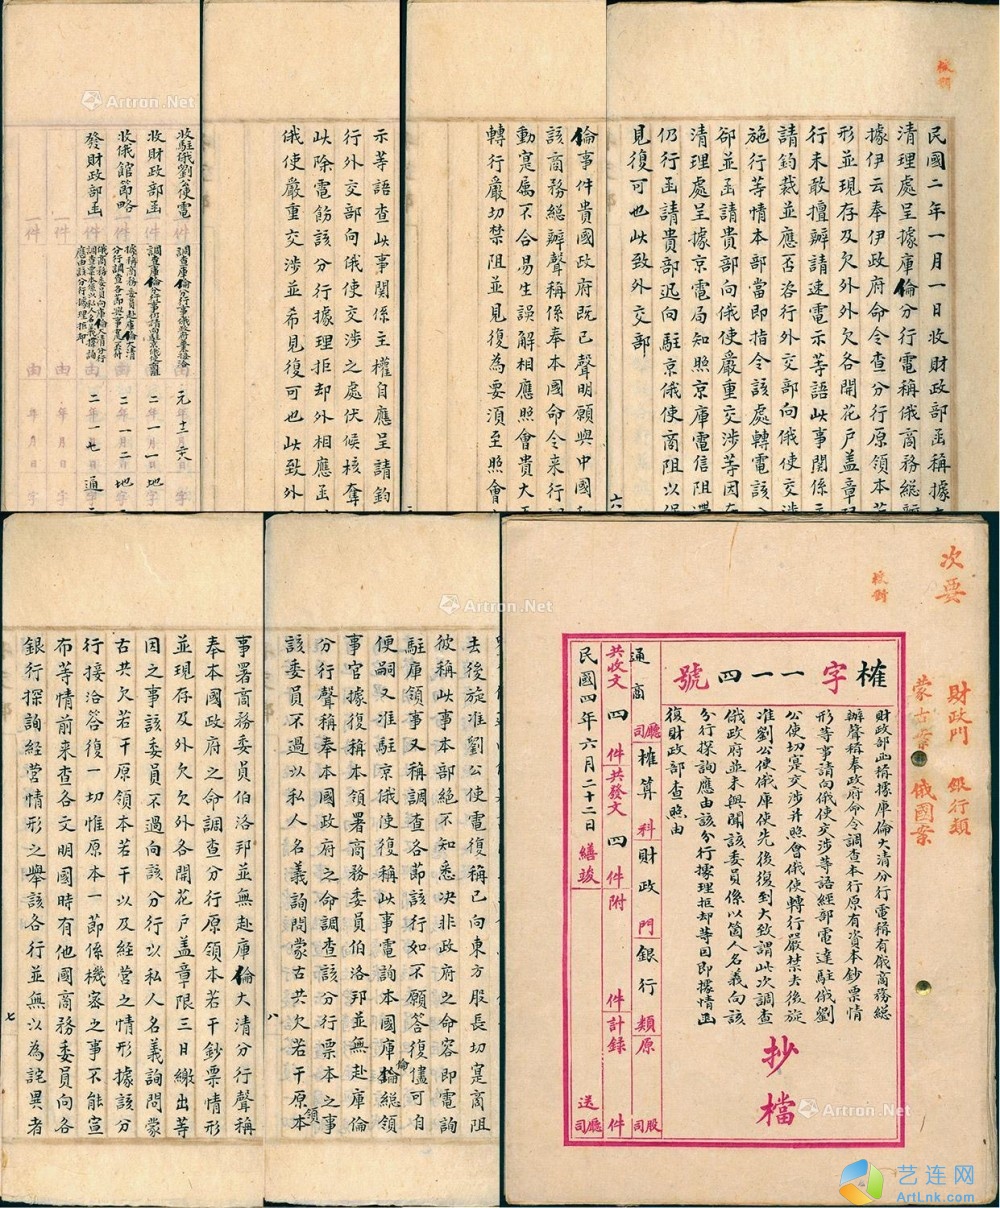 核對
民國二年一月一日收財政部函稱據
清理處呈據庫倫分行電稱俄商務総辦
據伊云奉伊政府命令查分行原領本若
形並現存及欠外外欠各開花戶盖章
行未敢擅辦請速電示等語此事関係
請鈞裁並應否咨行外交部向俄使交涉
施行等情本部當即指令該處轉電該
卻並函請貴部向俄使嚴重交涉等因在
清理處呈據京電局知照京庫電信阻滯
仍行函請貴部迅向駐京俄使商阻以
見復可也此致外交部
六
倫事件貴國政府既已聲明願與中國
該商務総辦聲稱係奉本國命令来行
動寔属不合易生誤解相應照會貴大
轉行嚴切禁阻並見復為要須至照會
示等語查此事関係主權自應呈請鈞
行外交部向俄使交涉之處伏候核奪
此除電飭該分行據理拒却外相應函
俄使嚴重交涉並希見復可也此致外
收駐俄劉公使電 一件 調查庫倫分行事 由 元年十二月 日
收財政部函 一件 調查庫倫分行事 由 二年一月一日 地字
收俄館節略 一件 據稱商務委員赴庫倫大清分行調查各節 由 二年一月二日 地字
發財政部函 一件 俄商務委員向庫倫大清分行調查票本係以私人名義探詢應由該分行據理拒却 由 二年一月七日 通字
一件 由 年 月 日 字
一件 由 年 月 日 字
次要
核對
財政門 銀行類
蒙古案 俄國案
榷字一一四號
財政部函稱據庫倫大清分行電稱有俄商務総
辦聲稱奉政府命令調查本行原有資本鈔票情
形等事請向俄使交涉等語經部電達駐俄劉
公使切寔交涉并照會俄使轉行嚴禁去後旋
准劉公使俄庫使先後復到大致謂此次調查
俄政府並未與聞該委員係以箇人名義向該
分行探詢應由該分行據理拒却等因即據情函
復財政部查照由
抄檔
通商司廳榷算科財政門銀行類原 股司
共收文四件共發文四件附 件計録 件
民國四年六月二十二日繕竣 送 司廳
去後旋准劉公使電復稱已向東方股長切寔商阻
彼稱此事本部絕不知悉决非政府之命容即電詢
駐庫領事又稱調查各節該行如不願答復儘可自
便嗣又准駐京俄使復稱此事電詢本國庫倫総領
事官據復稱本領署商務委員伯洛邘並無赴庫倫
分行聲稱奉本國政府之命調查該分行票本之事
該委員不過以私人名義詢問蒙古共欠若干原領本
八
事署商務委員伯洛邘並無赴庫倫大清分行聲稱
奉本國政府之命調查分行原領本若干鈔票情形
並現存及外欠欠外各開花戶盖章限三日繳出等
因之事該委員不過向該分行以私人名義詢問蒙
古共欠若干原領本若干以及經營之情形據該分
行接洽答復一切惟原本一節係機密之事不能宣
布等情前来查各文明國時有他國商務委員向各
銀行探詢經營情形之舉該各行並無以為詫異者
七
Artron.Net
Artron.Net
Artron.Net
Artron.Net
艺连网
ArtLnk.com